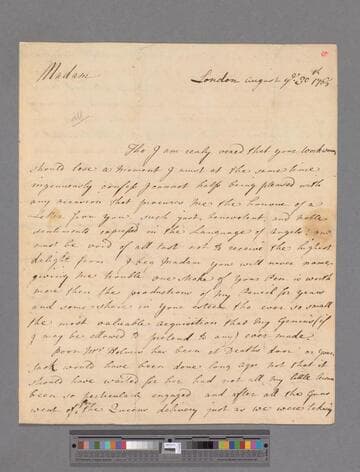 Madam
London August ye 30th 1765
Tho I am realy vexed that your workwomen
should lose a moment I must at the same time
ingenuously confess I cannot help being pleased with
any occasion that procures me the honour of a
Letter from you, such just, benevolent, and noble
sentiments expressed in the Language of Angels, one
must be void of all tast not to receive the highest
delight from. I beg Madam you will never name
giving me trouble one stroke of your Pen is worth
more than the productions of my Pencil for years
and some where in your letters tho ever so small
the most valuable acquisition that my Genius (if
I may be allowed to pretend to any) ever made.
Poor Mrs Holmes has been at Deaths door or your
Sack would have been done long ago not that it
should have waited for her had not all my little
been so particularly engaged and after all the Gown
went of the Queens delivery just as we were taking